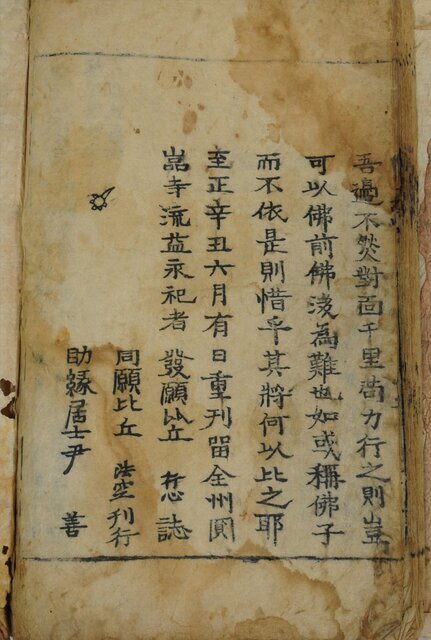 吾邊不然對面千里苟力行之則豈
可以佛前佛後為難也如或稱佛子
而不依是則惜乎其將何以比之耶
至正辛丑六月有日重刊留全州圓
嵓寺流益永祀者 發願比丘 志誌
同願比丘 法空刊行
助縁居士尹 善